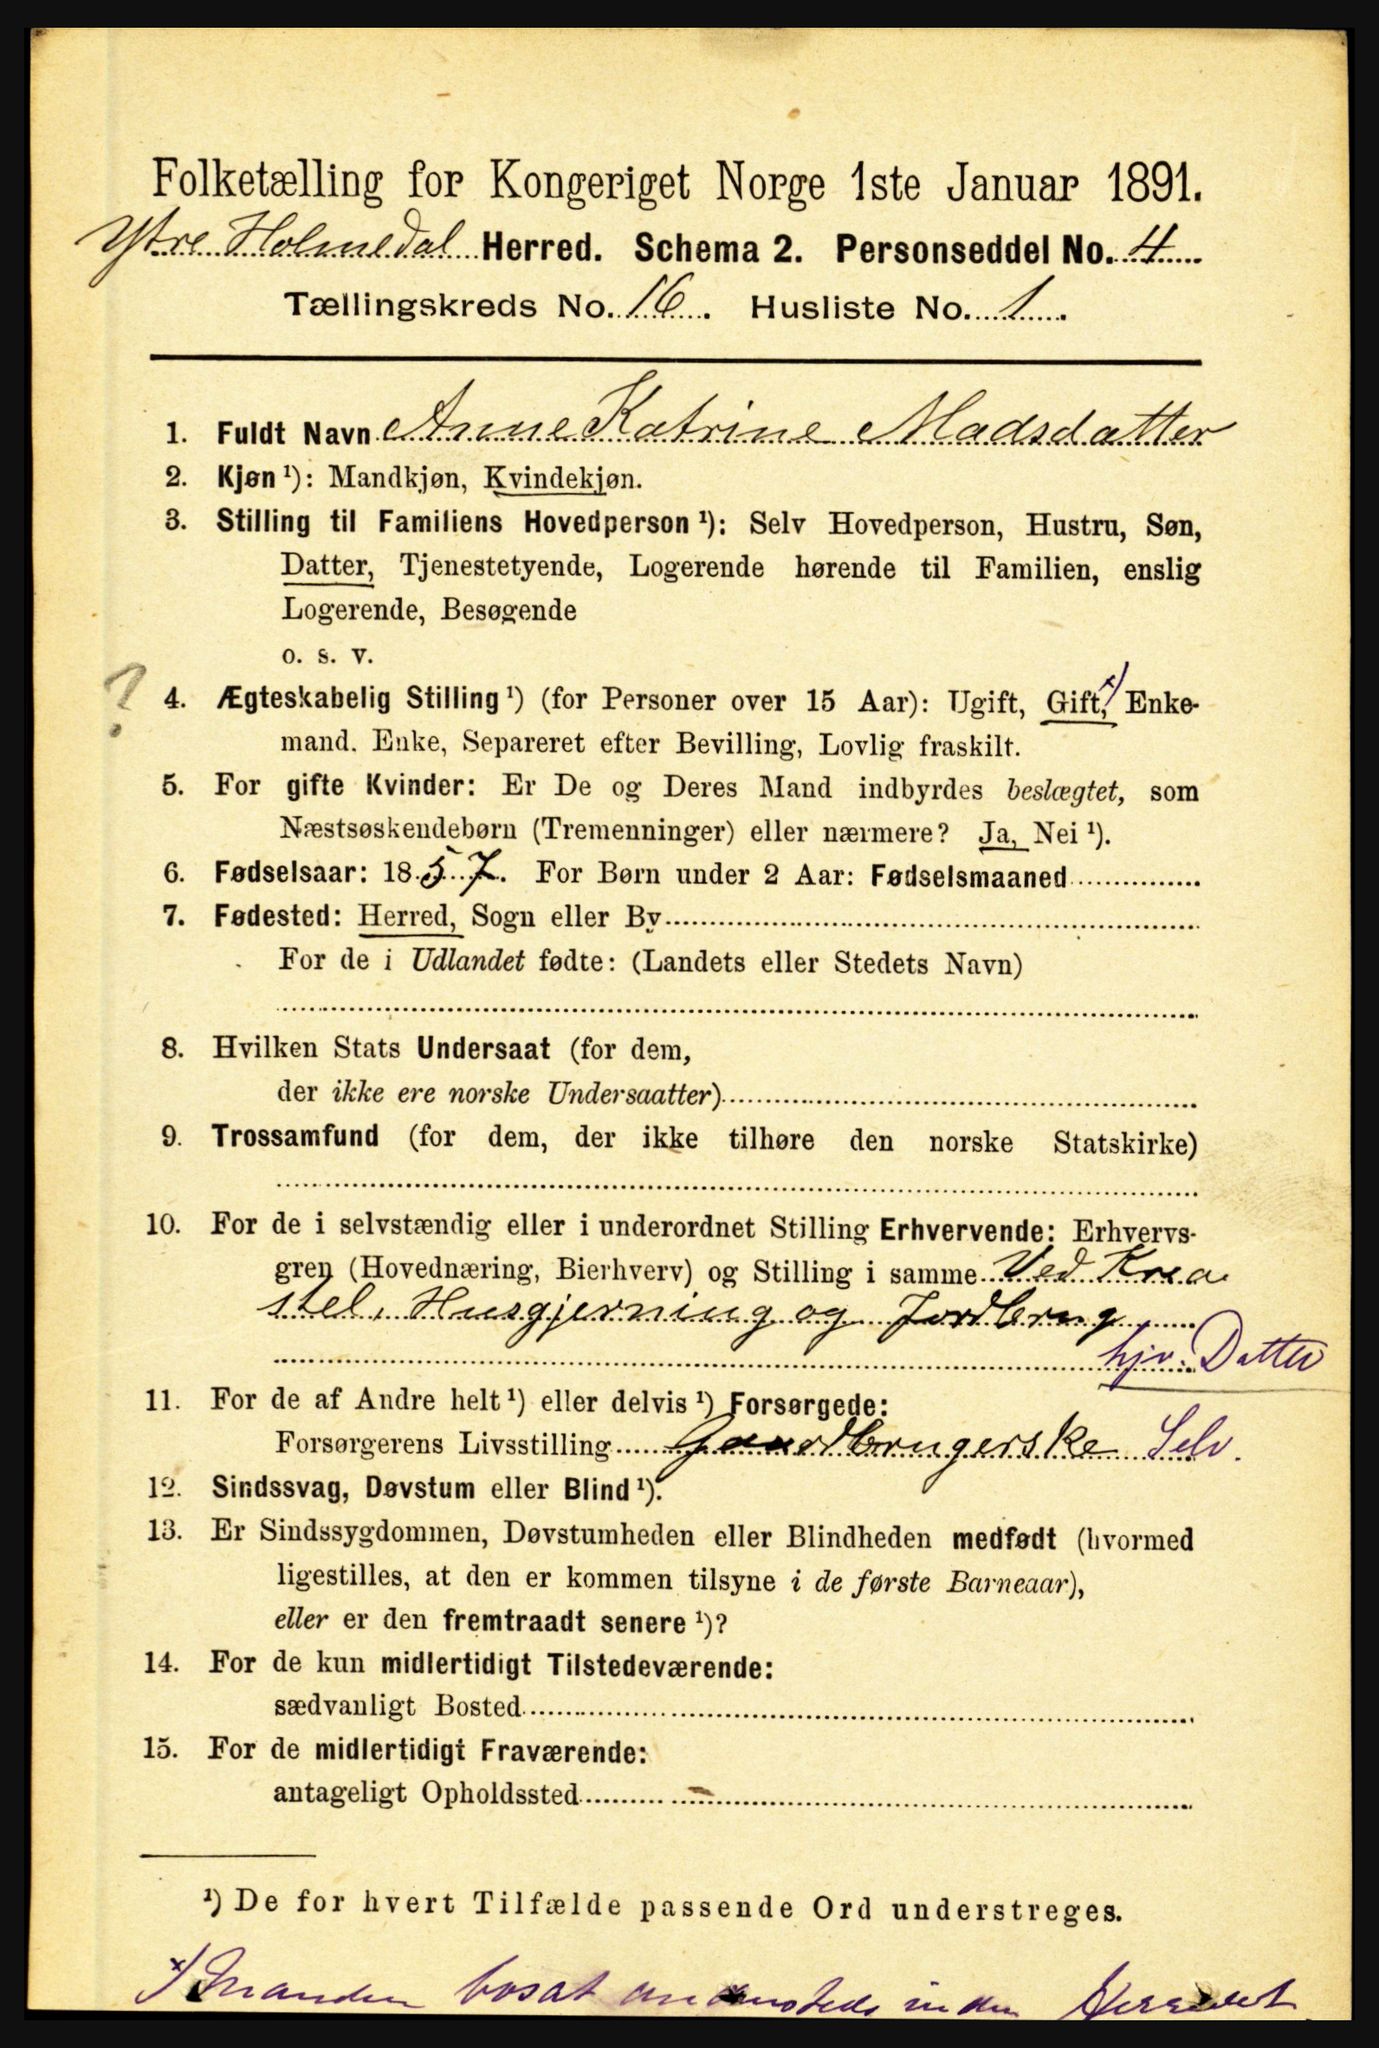 Folketælling for Kongeriget Norge 1ste Januar 1891.
Ytre Holmedal Herred. Schema 2. Personseddel No. 4
Tællingskreds No. 16. Husliste No. 1
1. Fuldt Navn Anne Katrine Madsdatter
2. Kjøn ¹): Mandkjøn, Kvindekjøn.
3. Stilling til Familiens Hovedperson ¹): Selv Hovedperson, Hustru, Søn,
Datter, Tjenestetyende, Logerende hørende til Familien, enslig
Logerende, Besøgende
o. s. v.
? 4. Ægteskabelig Stilling ¹) (for Personer over 15 Aar): Ugift, Gift, ˣ) Enke-
mand. Enke, Separeret efter Bevilling, Lovlig fraskilt.
5. For gifte Kvinder: Er De og Deres Mand indbyrdes beslægtet, som
Næstsøskendebørn (Tremenninger) eller nærmere? Ja, Nei ¹).
6. Fødselsaar: 1857. For Børn under 2 Aar: Fødselsmaaned
7. Fødested: Herred, Sogn eller By
For de i Udlandet fødte: (Landets eller Stedets Navn)
8. Hvilken Stats Undersaat (for dem,
der ikke ere norske Undersaatter)
9. Trossamfund (for dem, der ikke tilhøre den norske Statskirke)
10. For de i selvstændig eller i underordnet Stilling Erhvervende: Erhvervs-
gren (Hovednæring, Bierhverv) og Stilling i samme Ved Krea
stel, Husgjerning og Jordbrug
hjv. Datter
11. For de af Andre helt ¹) eller delvis ¹) Forsørgede:
Forsørgerens Livsstilling Gaardbrugerske Selv.
12. Sindssvag, Døvstum eller Blind ¹).
13. Er Sindssygdommen, Døvstumheden eller Blindheden medfødt (hvormed
ligestilles, at den er kommen tilsyne i de første Barneaar),
eller er den fremtraadt senere ¹)?
14. For de kun midlertidigt Tilstedeværende:
sædvanligt Bosted
15. For de midlertidigt Fraværende:
antageligt Opholdssted
¹) De for hvert Tilfælde passende Ord understreges.
ˣ) Manden bosat andensteds inden Herredet.